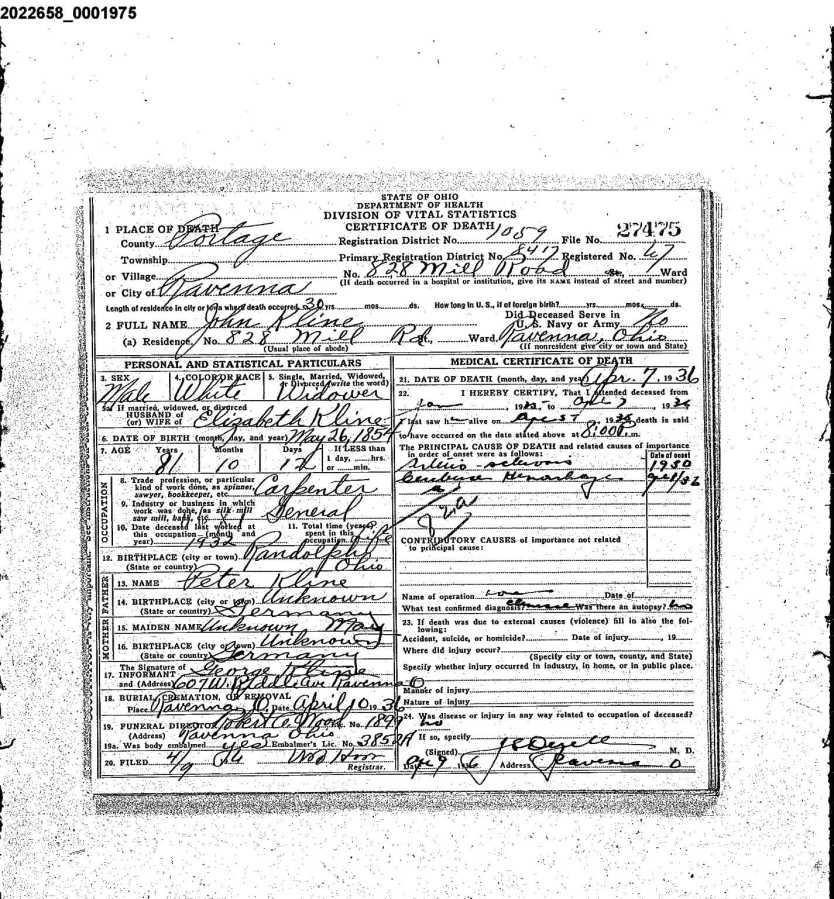 2022658_0001975
STATE OF OHIO
DEPARTMENT OF HEALTH
DIVISION OF VITAL STATISTICS
CERTIFICATE OF DEATH
1 PLACE OF DEATH
County Portage
Registration District No. 1059 File No. 27475
Township
Primary Registration District No. 8417 Registered No. 67
or Village
No. 828 Mill Road St., Ward
(If death occurred in a hospital or institution, give its NAME instead of street and number)
or City of Ravenna
Length of residence in city or town where death occurred 30 yrs. mos. ds. How long in U. S., if of foreign birth? yrs. mos. ds.
2 FULL NAME John Kline
Did Deceased Serve in U. S. Navy or Army No
(a) Residence, No. 828 Mill Rd. St., Ward. Ravenna, Ohio
(Usual place of abode) (If nonresident give city or town and State)
PERSONAL AND STATISTICAL PARTICULARS
3. SEX Male
4. COLOR OR RACE White
5. Single, Married, Widowed, or Divorced (write the word) Widower
5a. If married, widowed, or divorced
HUSBAND of
(or) WIFE of Elizabeth Kline
6. DATE OF BIRTH (month, day, and year) May 26, 1854
7. AGE Years 81 Months 10 Days 12 If LESS than 1 day, hrs. or min.
OCCUPATION
8. Trade profession, or particular
kind of work done, as spinner,
sawyer, bookkeeper, etc. Carpenter
9. Industry or business in which
work was done, as silk mill
saw mill, bank, etc. General
10. Date deceased last worked at
this occupation (month and
year) 1932
11. Total time (years)
spent in this
occupation Life
12. BIRTHPLACE (city or town) Randolph
(State or country) Ohio
FATHER
13. NAME Peter Kline
14. BIRTHPLACE (city or town) Unknown
(State or country) Germany
MOTHER
15. MAIDEN NAME Unknown Mary
16. BIRTHPLACE (city or town) Unknown
(State or country) Germany
17. The Signature of
INFORMANT George Kline
and (Address) 607 W. Riddle Ave Ravenna O
18. BURIAL, CREMATION, OR REMOVAL
Place Ravenna, O Date April 10 1936
19. FUNERAL DIRECTOR Robert C. Wood Lic. No. 1899
(Address) Ravenna Ohio
19a. Was body embalmed yes Embalmer's Lic. No. 3852A
20. FILED 4/9
Registrar.
MEDICAL CERTIFICATE OF DEATH
21. DATE OF DEATH (month, day, and year) Apr. 7, 1936
22. I HEREBY CERTIFY, That I attended deceased from
Jan to 1936
I last saw h alive on death is said
to have occurred on the date stated above at 8:00 m.
The PRINCIPAL CAUSE OF DEATH and related causes of importance
in order of onset were as follows: Date of onset
Arterio-sclerosis 1930
Cerebral Hemorrhage
82a
CONTRIBUTORY CAUSES of importance not related
to principal cause:
Name of operation Date of
What test confirmed diagnosis? Was there an autopsy? no
23. If death was due to external causes (violence) fill in also the following:
Accident, suicide, or homicide? Date of injury 19
Where did injury occur?
(Specify city or town, county, and State)
Specify whether injury occurred in industry, in home, or in public place.
Manner of injury
Nature of injury
24. Was disease or injury in any way related to occupation of deceased?
no
If so, specify
(Signed) M. D.
Date Address Ravenna O